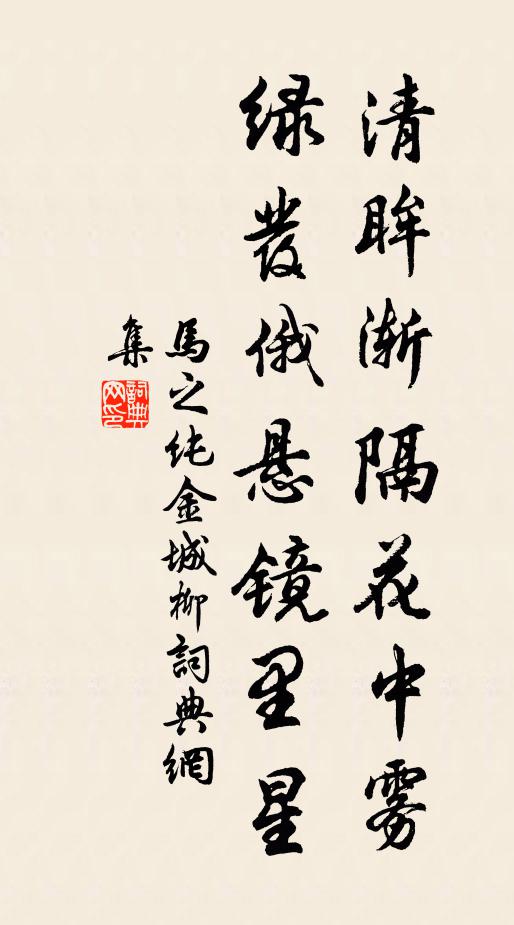 清眸渐隔花中雾
绿发俄悬镜里星
馬之纯金城柳詞典網
集
詞典
网印